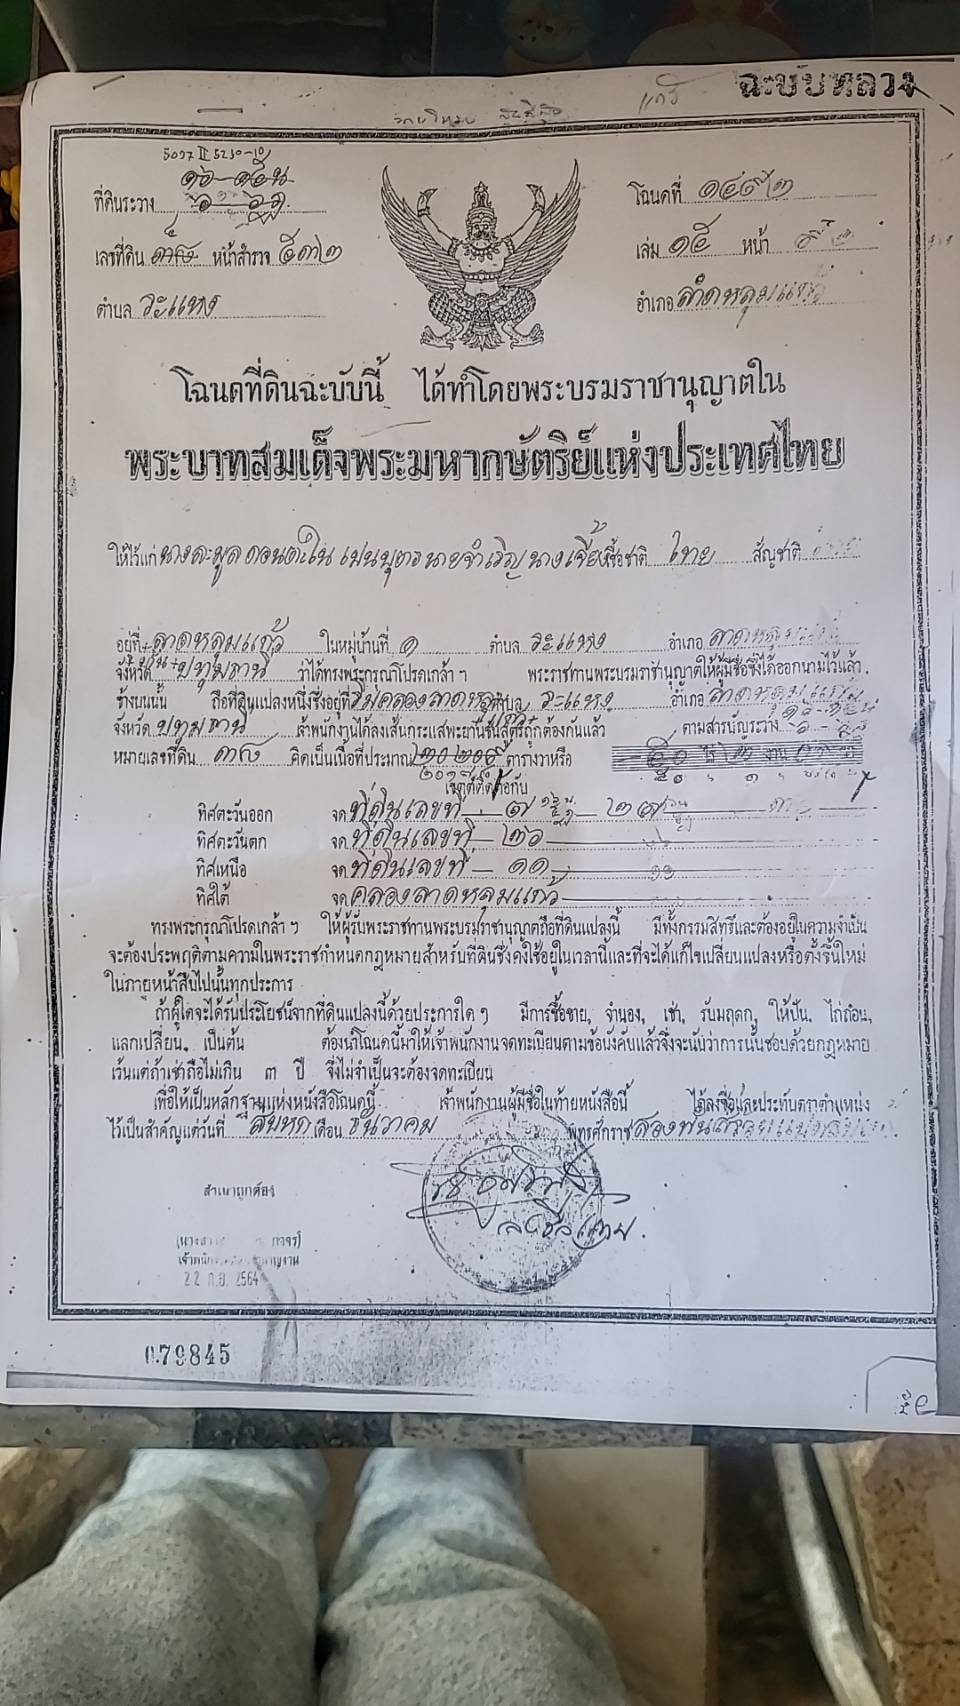 ฉะบับหลวง
แก้ว
5037 II 5230-10
ที่ดินระวาง
โฉนดที่ ๑๔๙๒
เลขที่ดิน ๓๘ หน้าสำรวจ
เล่ม ๑๕ หน้า
ตำบล ระแหง
อำเภอ ลาดหลุมแก้ว
โฉนดที่ดินฉะบับนี้ ได้ทำโดยพระบรมราชานุญาตใน
พระบาทสมเด็จพระมหากษัตริย์แห่งประเทศไทย
ให้ไว้แก่ นางละมูล เปนบุตร นายจำเริญ นางเจี้ยง เชื้อชาติ ไทย สัญชาติ
อยู่ที่ ลาดหลุมแก้ว ในหมู่บ้านที่ ๑ ตำบล ระแหง อำเภอ ลาดหลุมแก้ว
จังหวัด ปทุมธานี ว่าได้ทรงพระกรุณาโปรดเกล้าฯ พระราชทานพระบรมราชานุญาตให้ผู้มีชื่อซึ่งได้ออกนามไว้แล้ว
ข้างบนนั้น ถือที่ดินแปลงหนึ่งซึ่งอยู่ที่ ริมคลองลาดหลุมแก้ว ตำบล ระแหง อำเภอ ลาดหลุมแก้ว
จังหวัด ปทุมธานี เจ้าพนักงานได้ลงเส้นกระแสพะยานขันสูตร์ถูกต้องกันแล้ว ตามสารบัญระวาง
หมายเลขที่ดิน ๓๘ คิดเป็นเนื้อที่ประมาณ ๒๐๒๐๙ ตารางวาหรือ
เขตต์ติดต่อกับ
ทิศตะวันออก จด ที่ดินเลขที่ – ๗ – ๒๗
ทิศตะวันตก จด ที่ดินเลขที่ – ๒๖
ทิศเหนือ จด ที่ดินเลขที่ – ๑๑
ทิศใต้ จด คลองลาดหลุมแก้ว
ทรงพระกรุณาโปรดเกล้าฯ ให้ผู้รับพระราชทานพระบรมราชานุญาตถือที่ดินแปลงนี้ มีทั้งกรรมสิทธิ์และต้องอยู่ในความจำเป็น
จะต้องประพฤติตามความในพระราชกำหนดกฎหมายสำหรับที่ดินซึ่งคงใช้อยู่ในเวลานี้และที่จะได้แก้ไขเปลี่ยนแปลงหรือตั้งขึ้นใหม่
ในภายหน้าสืบไปนั้นทุกประการ
ถ้าผู้ใดจะได้รับประโยชน์จากที่ดินแปลงนี้ด้วยประการใดๆ มีการซื้อขาย, จำนอง, เช่า, รับมฤดก, ให้ปัน, ไถ่ถอน,
แลกเปลี่ยน, เป็นต้น ต้องนำโฉนดนี้มาให้เจ้าพนักงานจดทะเบียนตามข้อบังคับแล้วจึ่งจะนับว่าการนั้นชอบด้วยกฎหมาย
เว้นแต่ถ้าเช่าถือไม่เกิน ๓ ปี จึ่งไม่จำเป็นจะต้องจดทะเบียน
เพื่อให้เป็นหลักฐานแห่งหนังสือโฉนดนี้ เจ้าพนักงานผู้มีชื่อในท้ายหนังสือนี้ ได้ลงชื่อและประทับตราตำแหน่ง
ไว้เป็นสำคัญแต่วันที่ สิบหก เดือน ธันวาคม พุทธศักราช
สำเนาถูกต้อง
22 ก.ย. 2564
079845